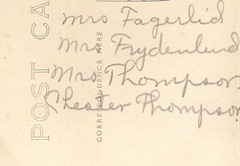 POST CA
CORRESPONDENCE HERE
Mrs Fagerlid
Mrs Frydenlund
Mrs Thompson
Chester Thompson